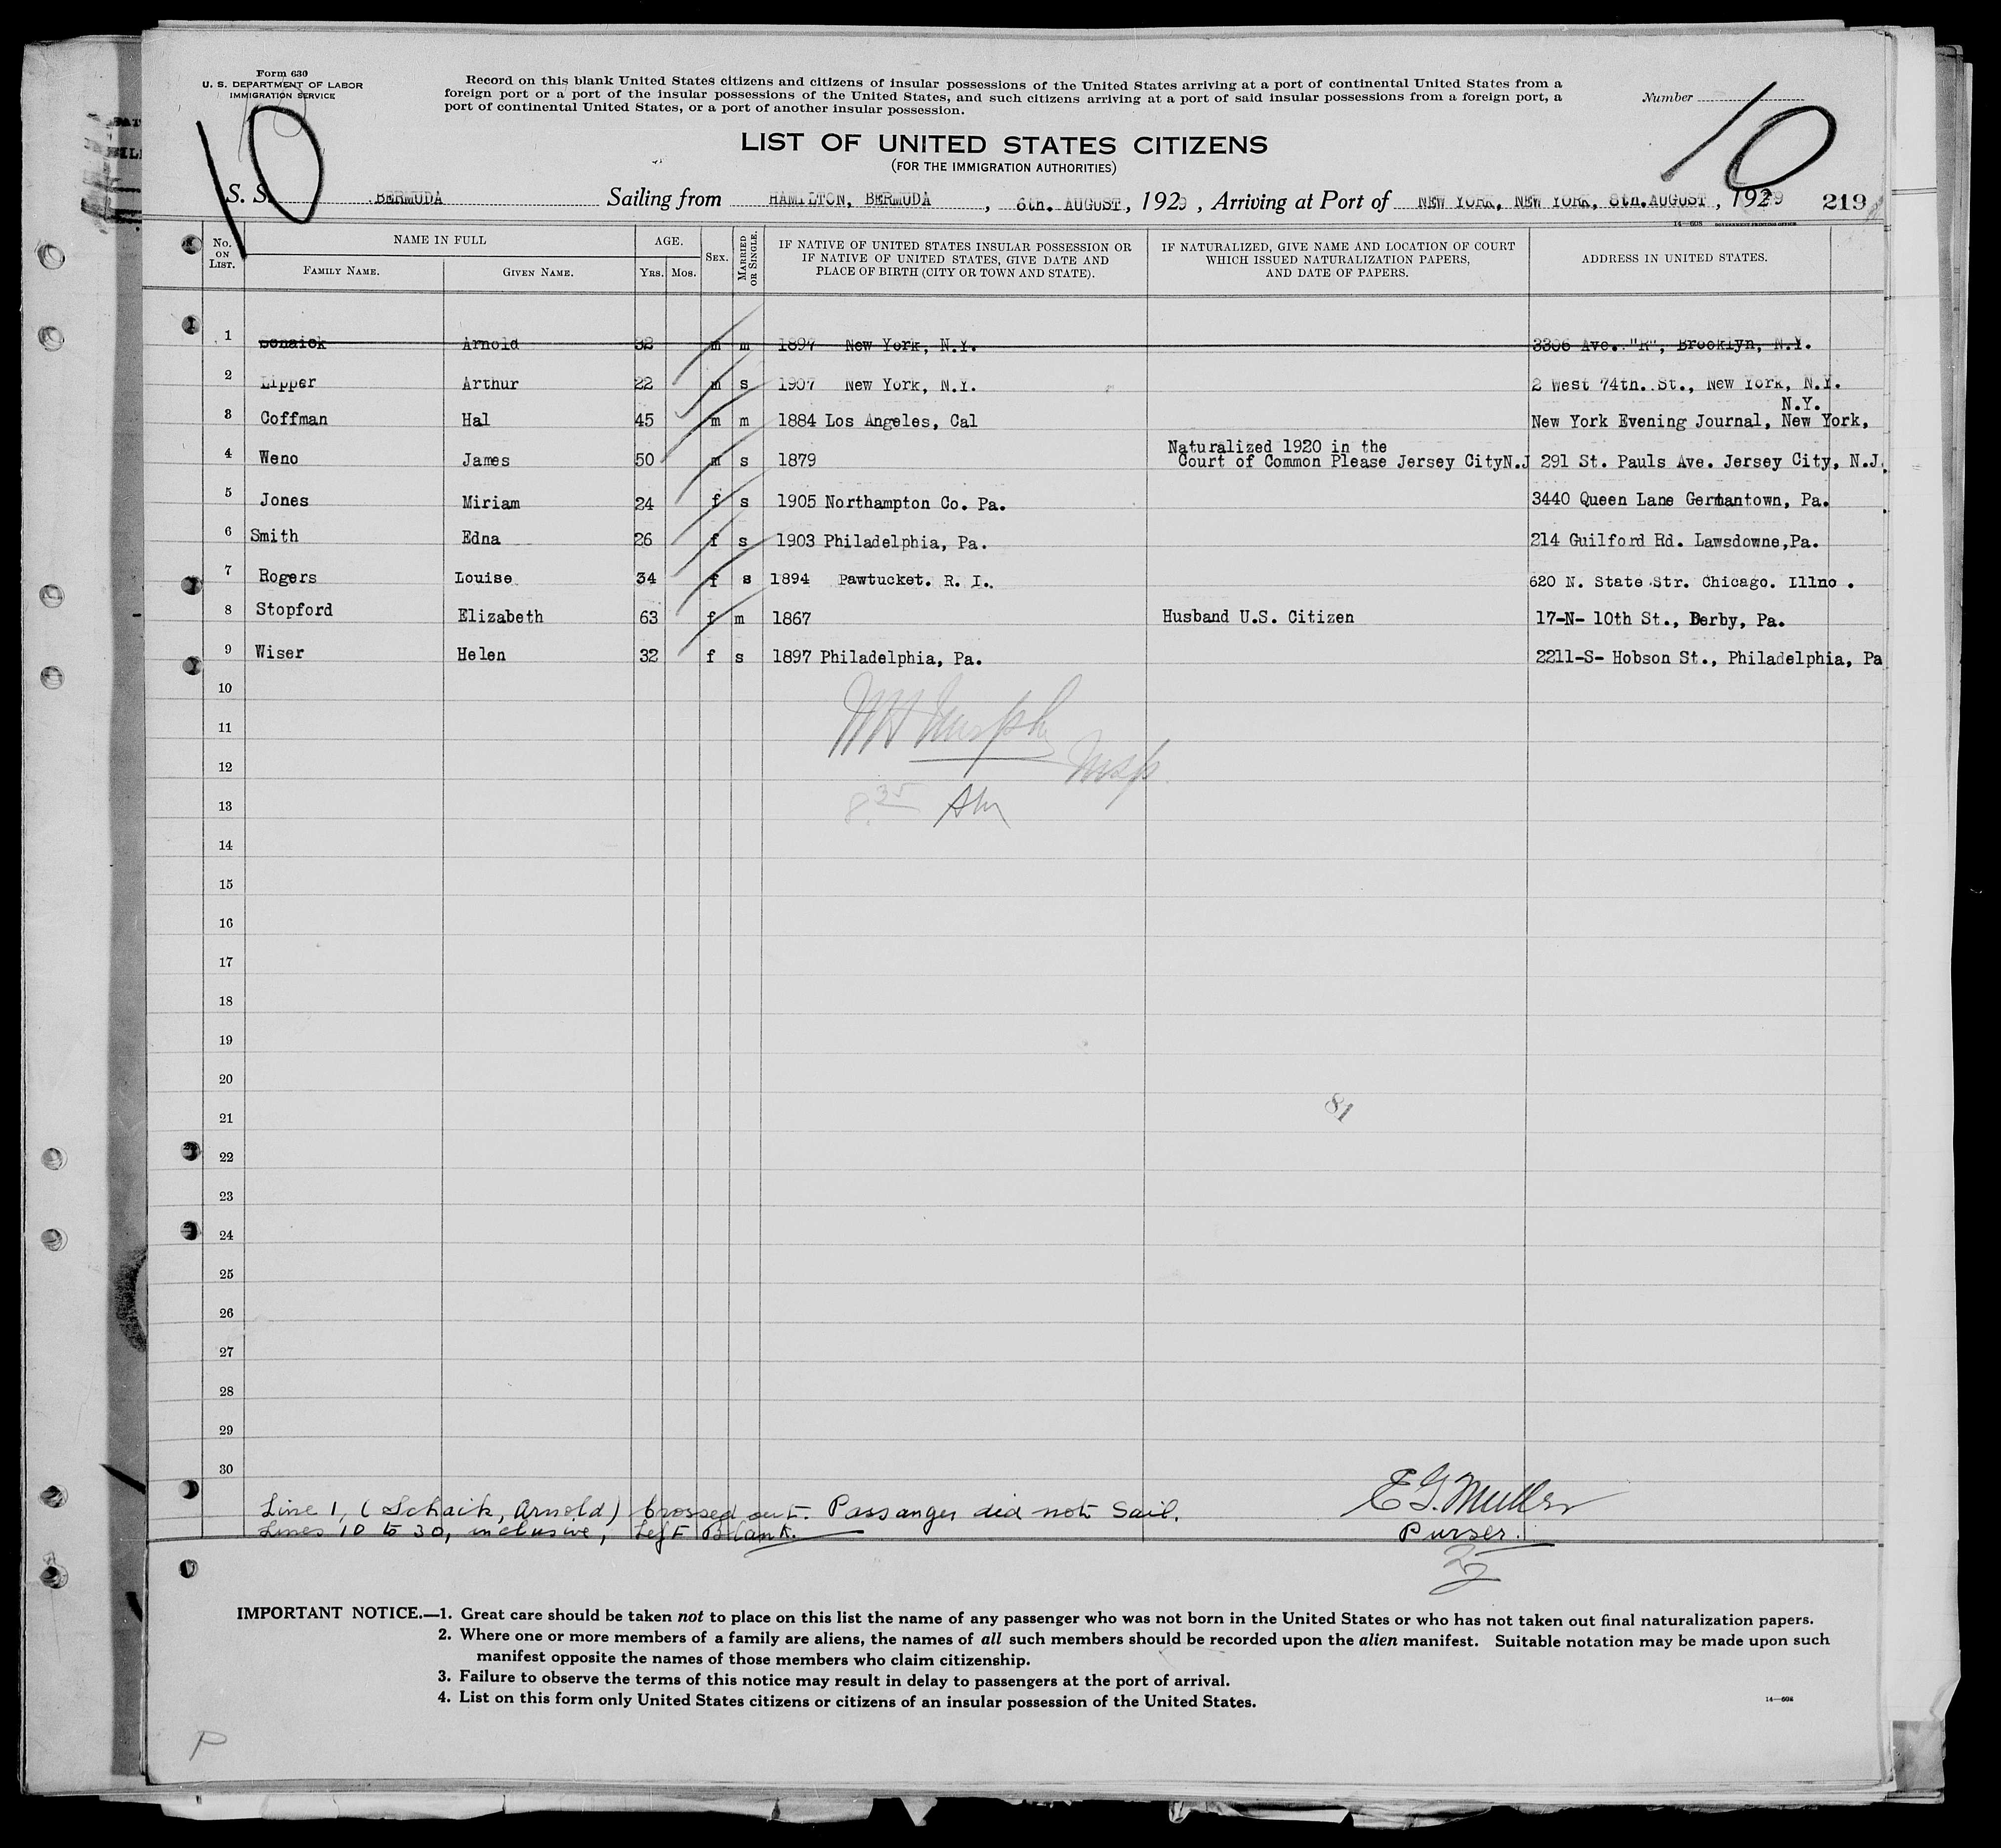 Form 630
U. S. DEPARTMENT OF LABOR
IMMIGRATION SERVICE
Record on this blank United States citizens and citizens of insular possessions of the United States arriving at a port of continental United States from a
foreign port or a port of the insular possessions of the United States, and such citizens arriving at a port of said insular possessions from a foreign port, a
port of continental United States, or a port of another insular possession.
Number
10
10
LIST OF UNITED STATES CITIZENS
(FOR THE IMMIGRATION AUTHORITIES)
S. S. BERMUDA Sailing from HAMILTON, BERMUDA, 6th. AUGUST, 1929, Arriving at Port of NEW YORK, NEW YORK, 8th. AUGUST, 1929 219
14—608 GOVERNMENT PRINTING OFFICE
No. ON LIST. NAME IN FULL AGE. SEX. MARRIED OR SINGLE. IF NATIVE OF UNITED STATES INSULAR POSSESSION OR IF NATIVE OF UNITED STATES, GIVE DATE AND PLACE OF BIRTH (CITY OR TOWN AND STATE). IF NATURALIZED, GIVE NAME AND LOCATION OF COURT WHICH ISSUED NATURALIZATION PAPERS, AND DATE OF PAPERS. ADDRESS IN UNITED STATES.
FAMILY NAME. GIVEN NAME. YRS. MOS.
1 Schaick Arnold 32 m m 1897 New York, N.Y. 3306 Ave. "R", Brooklyn, N.Y.
2 Lipper Arthur 22 m s 1907 New York, N.Y. 2 West 74th. St., New York, N.Y.
N.Y.
3 Coffman Hal 45 m m 1884 Los Angeles, Cal New York Evening Journal, New York,
Naturalized 1920 in the
4 Weno James 50 m s 1879 Court of Common Please Jersey CityN.J 291 St. Pauls Ave. Jersey City, N.J.
5 Jones Miriam 24 f s 1905 Northampton Co. Pa. 3440 Queen Lane Germantown, Pa.
6 Smith Edna 26 f s 1903 Philadelphia, Pa. 214 Guilford Rd. Lawsdowne,Pa.
7 Rogers Louise 34 f s 1894 Pawtucket. R. I. 620 N. State Str. Chicago. Illno .
8 Stopford Elizabeth 63 f m 1867 Husband U.S. Citizen 17-N- 10th St., Derby, Pa.
9 Wiser Helen 32 f s 1897 Philadelphia, Pa. 2211-S- Hobson St., Philadelphia, Pa
10
11 Murphy
12 Insp.
13 8.35 AM
14
15
16
17
18
19
20
21 81
22
23
24
25
26
27
28
29
30
Line 1, (Schaick, Arnold) crossed out. Passanger did not Sail. E G. Muller
Lines 10 to 30, inclusive, Left Blank. Purser.
IMPORTANT NOTICE.—1. Great care should be taken not to place on this list the name of any passenger who was not born in the United States or who has not taken out final naturalization papers.
2. Where one or more members of a family are aliens, the names of all such members should be recorded upon the alien manifest. Suitable notation may be made upon such
manifest opposite the names of those members who claim citizenship.
3. Failure to observe the terms of this notice may result in delay to passengers at the port of arrival.
4. List on this form only United States citizens or citizens of an insular possession of the United States.
14—608
P